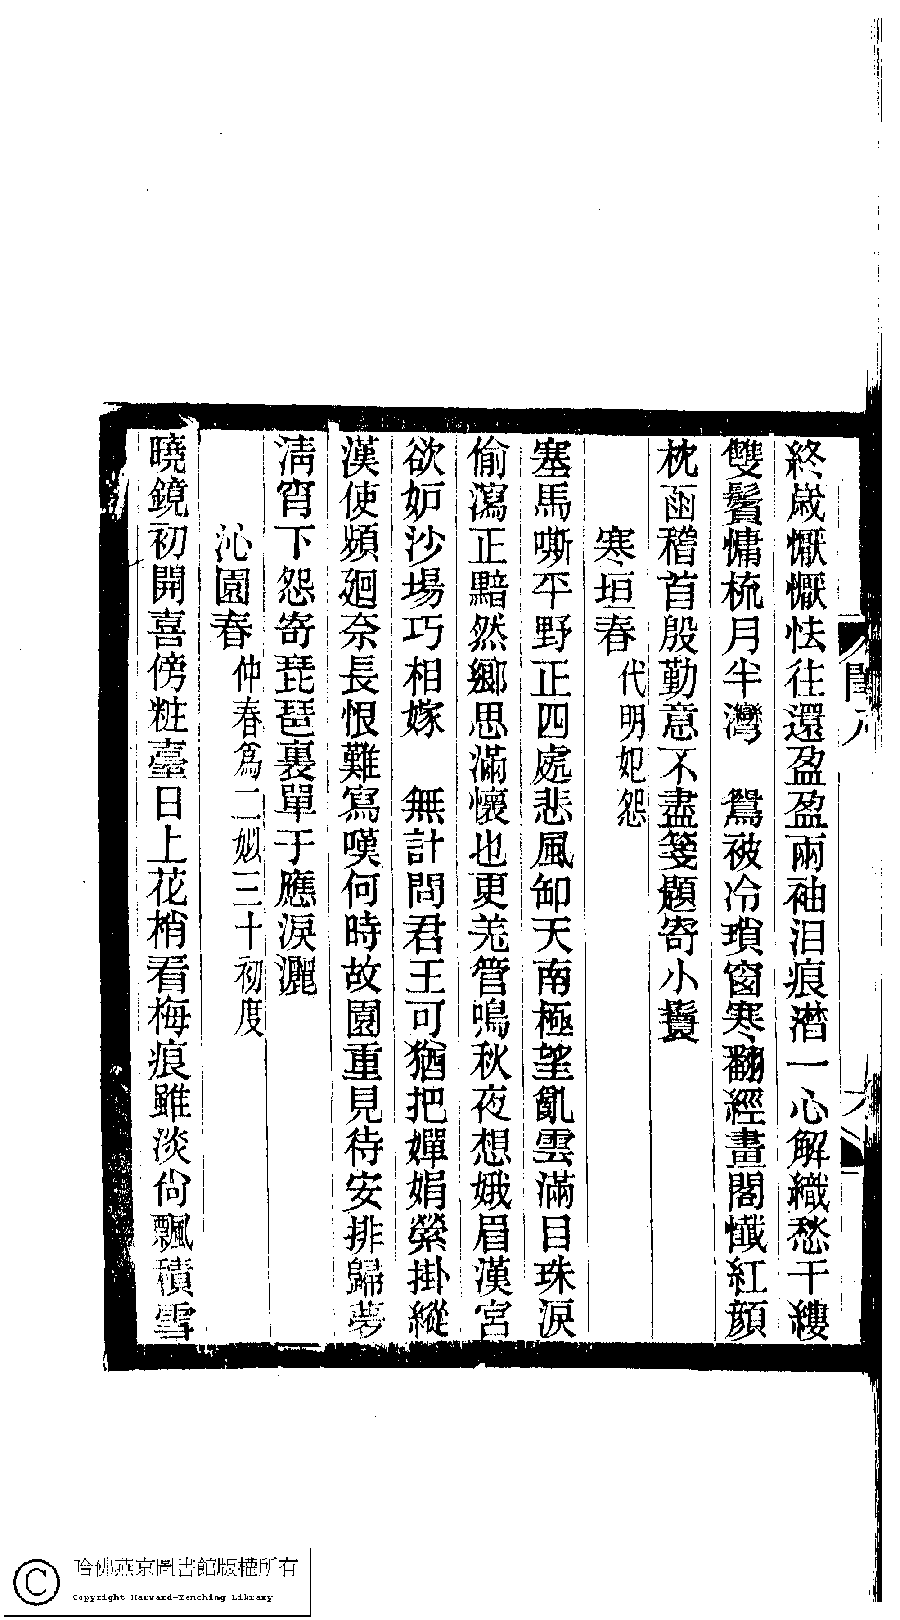 終歲懨懨怯往還盈盈兩袖泪痕潸一心解織愁千縷
雙鬢慵梳月半灣　鴛被冷瑣窗寒翻經畫閣懺紅顏
枕函稽首殷勤意不盡箋題寄小鬟
寒垣春代明妃怨
塞馬嘶平野正四處悲風卸天南極望亂雲滿目珠淚
偷瀉正黯然鄉思滿懷也更羌管鳴秋夜想娥眉漢宮
欲妒沙場巧相嫁　無計問君王可猶把嬋娟縈掛縱
漢使頻迴奈長恨難寫嘆何時故園重見待安排歸夢
清宵下怨寄琵琶裏單于應淚灑
沁園春仲春爲二姒三十初度
曉鏡初開喜傍粧臺日上花梢看梅痕雖淡尙飄積雪
哈佛燕京圖書館版權所有
Copyright Harvard-Yenching Library